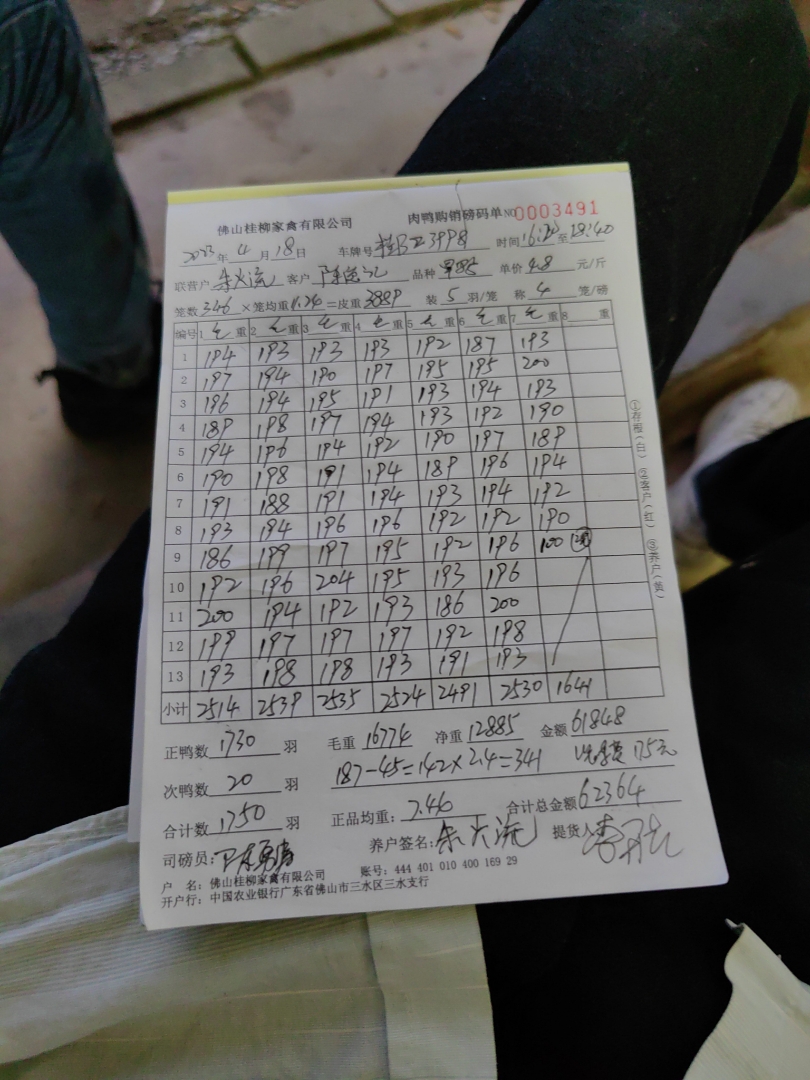 佛山桂柳家禽有限公司 肉鸭购销磅码单 NO 0003491
2023年4月18日 车牌号 时间 16:20 至 18:40
联营户 朱火流 客户 品种 单价 4.8 元/斤
笼数 346 ×笼均重 11.24 =皮重 3889 装 5 羽/笼 称 4 笼/磅
编号 1 毛 重 2 毛 重 3 毛 重 4 毛 重 5 毛 重 6 毛 重 7 毛 重 8 重
1 194 193 193 193 192 187 193
2 197 194 190 197 195 195 200
3 196 194 195 191 193 194 193
4 189 198 197 194 193 192 190
5 194 196 194 192 190 197 189
6 190 198 191 194 189 196 194
7 191 188 191 194 193 194 192
8 193 194 196 196 192 192 190
9 186 199 197 195 192 196 100
10 192 196 204 195 193 196
11 200 194 192 193 186 200
12 199 197 197 197 192 198
13 193 198 198 193 191 193
小计 2514 2539 2535 2524 2491 2530 1641
正鸭数 1730 羽 毛重 16774 净重 12885 金额 61848
次鸭数 20 羽 187-45=142×2.4=341 175元
合计数 1750 羽 正品均重: 7.46 合计总金额 62364
司磅员: 养户签名: 朱火流 提货人
户 名: 佛山桂柳家禽有限公司 账号: 444 401 010 400 169 29
开户行: 中国农业银行广东省佛山市三水区三水支行
①存根(白) ②客户(红) ③养户(黄)